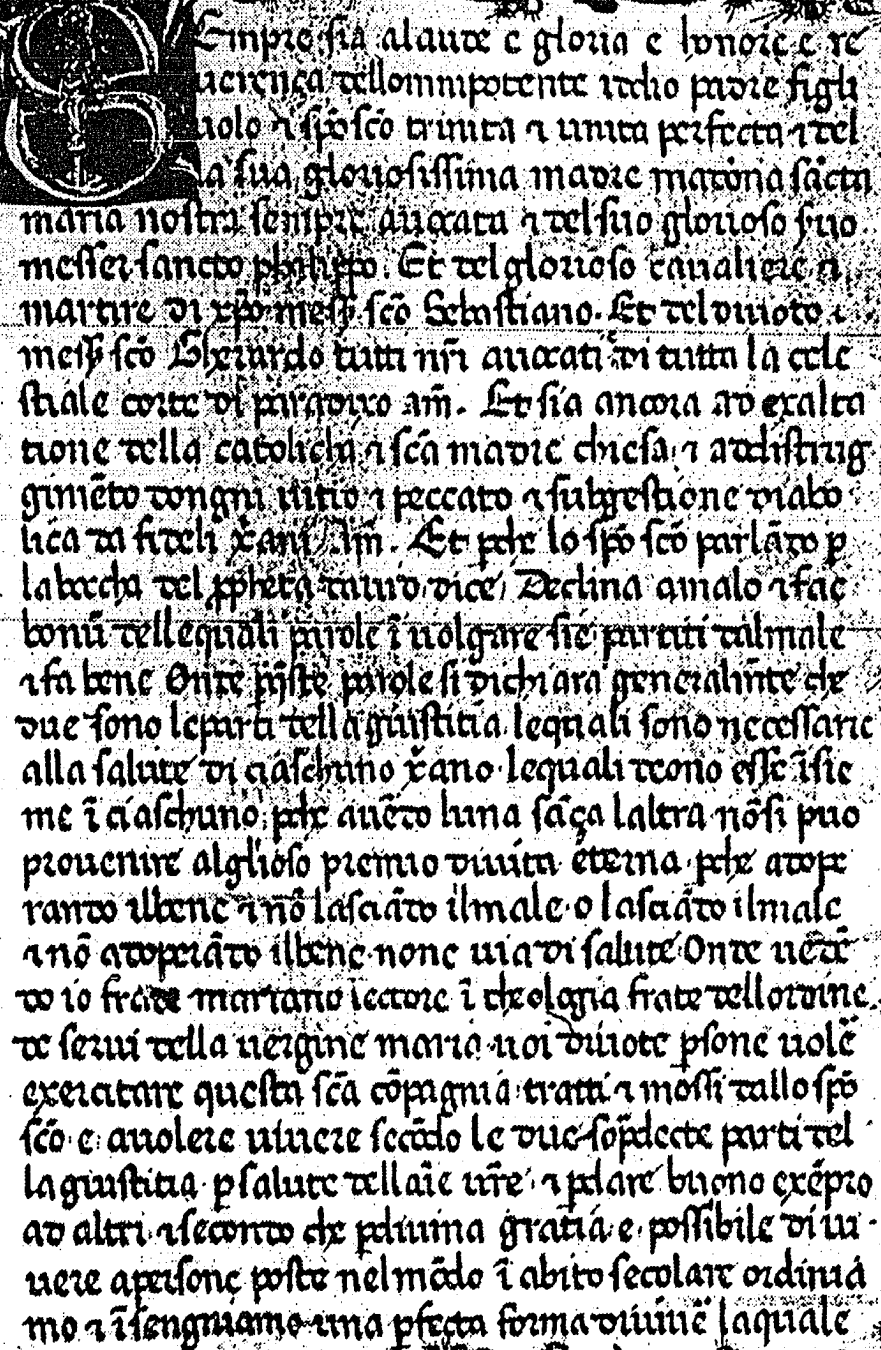 Sempre sia alaude e gloria e honore e re
uerença dellomnipotente iddio padre figli
uolo ⁊ sp̄o sc̄o trinita ⁊ unita perfecta ⁊ del
la sua gloriosissima madre madōna sācta
maria nostra sempre auocata ⁊ del suo glorioso suo
messer sancto philippo. Et del glorioso caualiere ⁊
martire di xp̄o mess̄ sc̄o Sebastiano. Et del diuoto
mess̄ sc̄o Gherardo tutti nr̄i auocati ⁊ di tutta la cele
stiale corte di paradixo am̄. Et sia ancora ad exalta
tione della catolicha ⁊ sc̄a madre chiesa ⁊ addistrug
gimēto dongni uitio ⁊ peccato ⁊ subgestione diabo
lica da fedeli x̄ani Am̄. Et p̄che lo sp̄o sc̄o parlādo p̄
la boccha del p̄pheta dauid dice, Declina amalo ⁊ fac
bonū dellequali parole ī uolgare sie partiti dalmale
⁊ fa bene Onde p̄q̄ste parole si dichiara generalm̄te che
due sono leparti della giustitia lequali sono necessarie
alla salute di ciaschuno x̄ano lequali deono esse īsie
me ī ciaschuno p̄che auēdo luna sāça laltra nōsi puo
prouenire alglīoso premio diuita eterna p̄che adope
rando ilbene ⁊ nō lasciādo ilmale o lasciādo ilmale
⁊ nō adoperādo ilbene none uia di salute Onde uedē
do io frate mariano lectore ī theologia frate dellordine
de serui della uergine maria uoi diuote p̄sone uolē
exercitare questa sc̄a cōpagnia tratti ⁊ mossi dallo sp̄o
sc̄o e auolere uiuere secōdo le due sop̄decte parti del
la giustitia p̄ salute dellaīe ur̄e ⁊ p̄dare buono exēpro
ad altri ⁊ secondo che p̄diuina gratia e possibile di ui
uere apersone poste nel mōdo ī abito secolare ordinia
mo ⁊ īsengniamo una p̄fecta forma diuiuē laquale